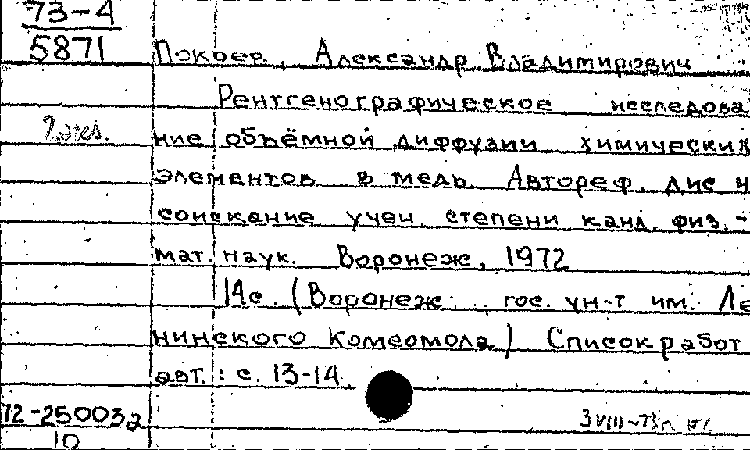 73-4
5871
Покоев, Александр Владимирович
Рентгенографическое исследова
2 экз.
ние объёмной диффузии химических
элементов в медь. Автореф. дис. н
соискание учен. степени канд. физ.-
мат. наук. Воронеж, 1972
14с. (Воронеж. гос. ун-т им. Ле
нинского Комсомола) Список работ
авт.: с. 13-14.
72-25003а
3 VIII-73г.
10